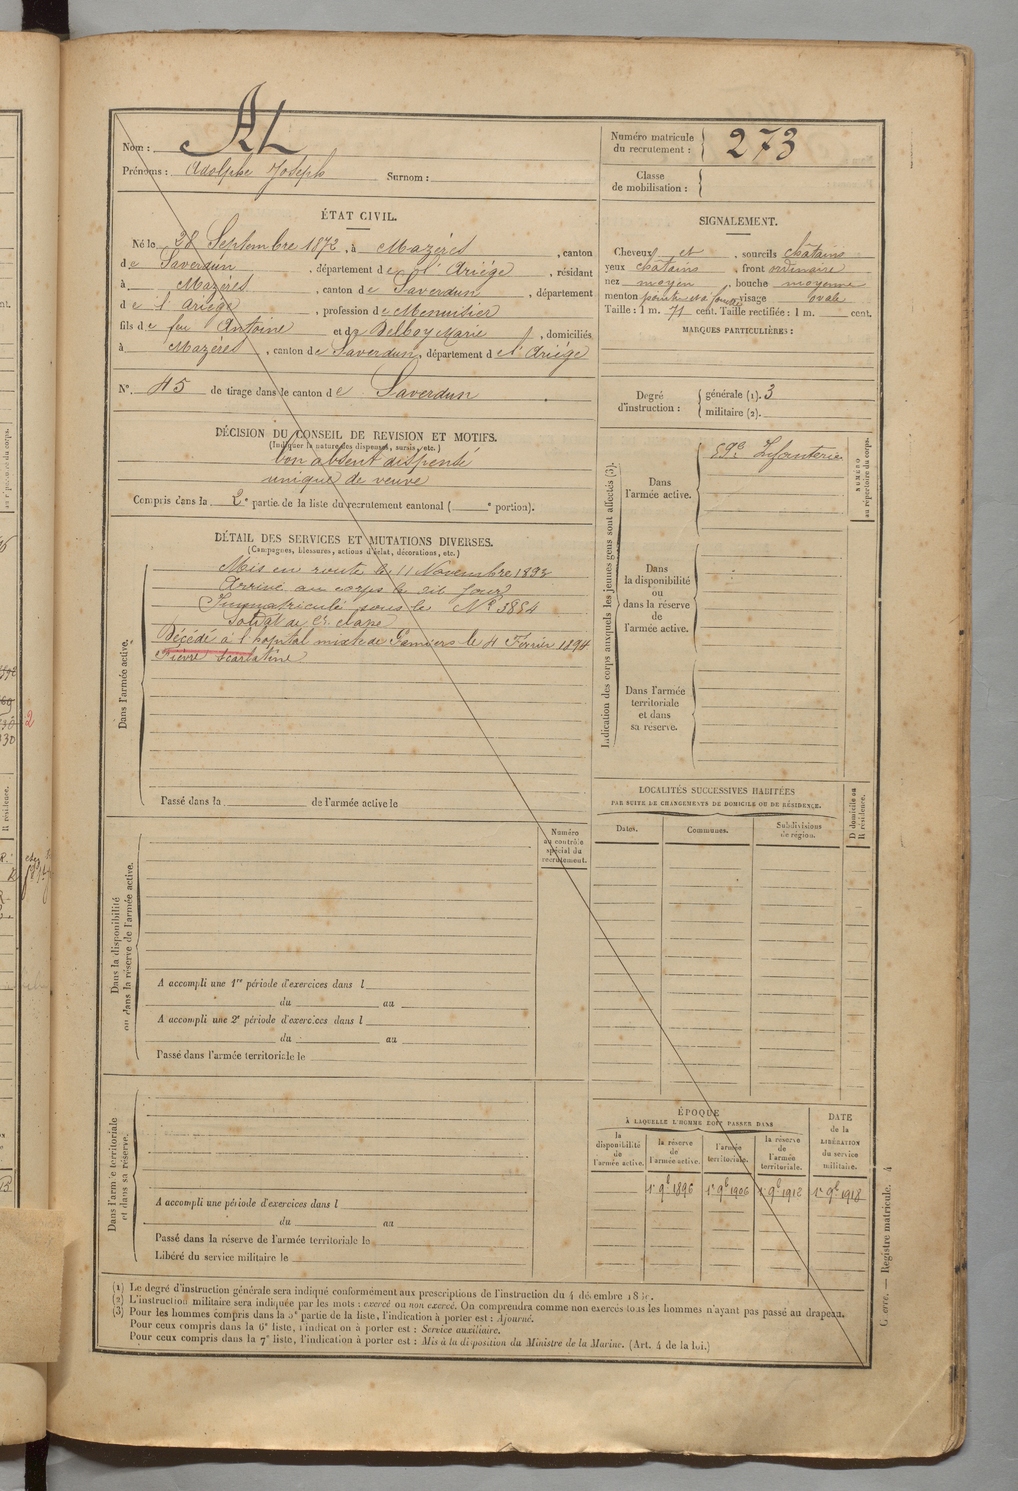 Nom : AL
Prénoms : Adolphe Joseph Surnom :
Numéro matricule du recrutement : 273
Classe de mobilisation :
ÉTAT CIVIL.
Né le 28 Septembre 1872, à Mazères, canton
de Saverdun, département de l'Ariège, résidant
à Mazères, canton de Saverdun, département
de l'Ariège, profession de Menuisier
fils de feu Antoine et de Delboy Marie, domiciliés
à Mazères, canton de Saverdun, département de l'Ariège
N° 45 de tirage dans le canton de Saverdun
SIGNALEMENT.
Cheveux et, sourcils châtains
yeux châtains, front ordinaire
nez moyen, bouche moyenne
menton visage ovale
Taille : 1 m. 71 cent. Taille rectifiée : 1 m. cent.
MARQUES PARTICULIÈRES :
Degré d'instruction : générale (1). 3
militaire (2).
DÉCISION DU CONSEIL DE REVISION ET MOTIFS.
(Indiquer la nature des dispenses, sursis, etc.)
bon absent dispensé
unique de veuve
Compris dans la 2e partie de la liste du recrutement cantonal ( e portion).
DÉTAIL DES SERVICES ET MUTATIONS DIVERSES.
(Campagnes, blessures, actions d'éclat, décorations, etc.)
Dans l'armée active.
Mis en route le 11 Novembre 1893
Arrivé au corps le dit jour
Immatriculé sous le N° 3884
Soldat de 2e classe
Décédé à l'hopital mixte de Pamiers le 4 Février 1894
Fièvre Scarlatine
Passé dans la de l'armée active le
Indication des corps auxquels les jeunes gens sont affectés (3).
NUMÉRO au répertoire du corps.
Dans l'armée active.
59e Infanterie
Dans la disponibilité ou dans la réserve de l'armée active.
Dans l'armée territoriale et dans sa réserve.
LOCALITÉS SUCCESSIVES HABITÉES
PAR SUITE DE CHANGEMENTS DE DOMICILE OU DE RÉSIDENCE.
Dates. Communes. Subdivisions de région. D domicile ou R résidence.
Numéro au contrôle spécial du recrutement.
Dans la disponibilité ou dans la réserve de l'armée active.
A accompli une 1re période d'exercices dans l
du au
A accompli une 2e période d'exercices dans l
du au
Passé dans l'armée territoriale le
Dans l'armée territoriale et dans sa réserve.
A accompli une période d'exercices dans l
du au
Passé dans la réserve de l'armée territoriale le
Libéré du service militaire le
ÉPOQUE
À LAQUELLE L'HOMME DOIT PASSER DANS
la disponibilité de l'armée active.
la réserve de l'armée active.
l'armée territoriale.
la réserve de l'armée territoriale.
DATE de la LIBÉRATION du service militaire.
1er 9b 1896 1er 9b 1906 1er 9b 1912 1er 9b 1918
(1) Le degré d'instruction générale sera indiqué conformément aux prescriptions de l'instruction du 4 décembre
(2) L'instruction militaire sera indiquée par les mots : exercé ou non exercé. On comprendra comme non exercés tous les hommes n'ayant pas passé au drapeau.
(3) Pour les hommes compris dans la 5e partie de la liste, l'indication à porter est : Ajourné.
Pour ceux compris dans la 6e liste, l'indication à porter est : Service auxiliaire.
Pour ceux compris dans la 7e liste, l'indication à porter est : Mis à la disposition du Ministre de la Marine. (Art. 4 de la loi.)
Guerre. — Registre matricule. 4